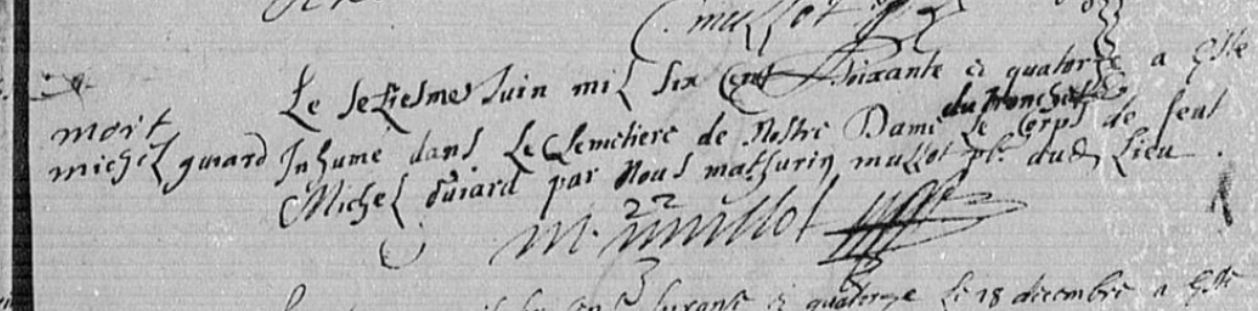 C. mullot
Le seziesme Juin mil six Cent Soixante et quatorze a Este
mort
michel guiard
du Tronchet
Inhumé dans Le Semetiere de Nostre Dame Le Corps de feut
Michel Guiard par Nous mathurin mullot pbr. aud Lieu.
m. mullot
Soixante et quatorze Le 18 decembre a Esté